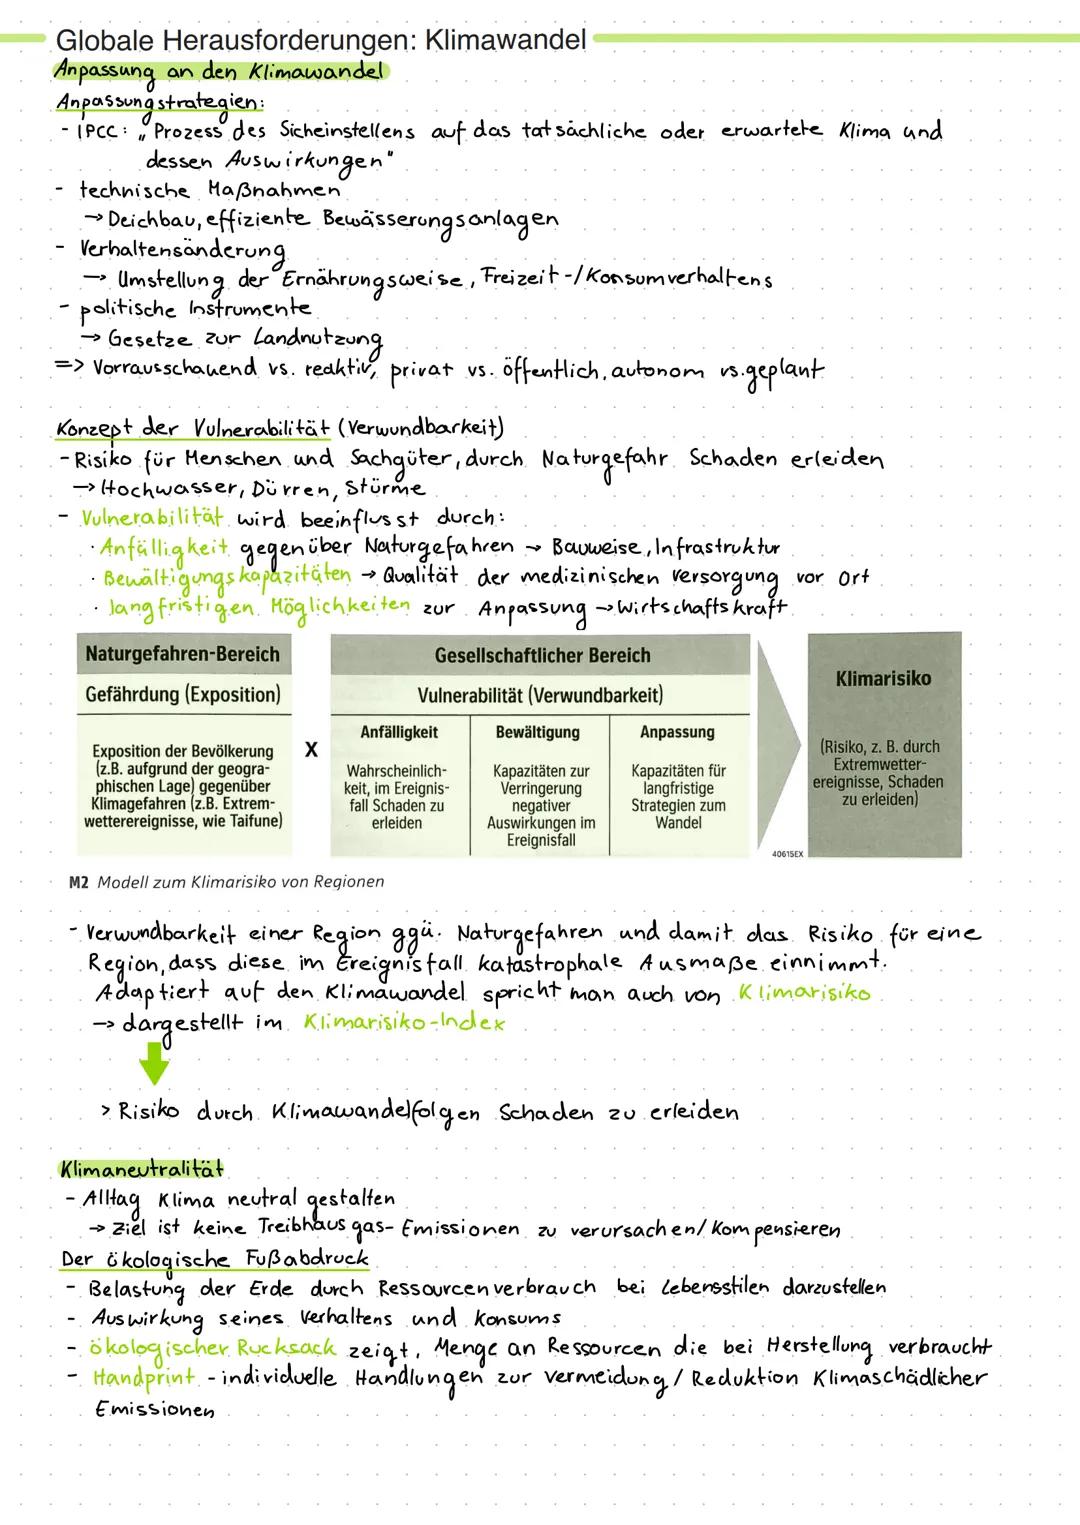 Globale Herausforderungen: Klimawandel
Anpassung an den Klimawandel
Anpassungstrategien:
- IPCC: „Prozess des Sicheinstellens auf das tatsächliche oder erwartete Klima und
dessen Auswirkungen"
- technische Maßnahmen
→ Deichbau, effiziente Bewässerungsanlagen
- Verhaltensänderung
→ Umstellung der Ernährungsweise, Freizeit-/Konsumverhaltens
- politische Instrumente
→ Gesetze zur Landnutzung
=> Vorrausschauend vs. reaktiv, privat vs. öffentlich, autonom vs. geplant
Konzept der Vulnerabilität (Verwundbarkeit)
- Risiko für Menschen und Sachgüter, durch Naturgefahr Schaden erleiden
→ Hochwasser, Dürren, Stürme
- Vulnerabilität wird beeinflusst durch:
· Anfälligkeit gegenüber Naturgefahren → Bauweise, Infrastruktur
· Bewältigungskapazitäten → Qualität der medizinischen Versorgung vor Ort
· langfristigen Möglichkeiten zur Anpassung → Wirtschaftskraft
Naturgefahren-Bereich
Gefährdung (Exposition)
Exposition der Bevölkerung
(z.B. aufgrund der geogra-
phischen Lage) gegenüber
Klimagefahren (z.B. Extrem-
wetterereignisse, wie Taifune)
X
Gesellschaftlicher Bereich
Vulnerabilität (Verwundbarkeit)
Anfälligkeit
Wahrscheinlich-
keit, im Ereignis-
fall Schaden zu
erleiden
Bewältigung
Kapazitäten zur
Verringerung
negativer
Auswirkungen im
Ereignisfall
Anpassung
Kapazitäten für
langfristige
Strategien zum
Wandel
Klimarisiko
(Risiko, z. B. durch
Extremwetter-
ereignisse, Schaden
zu erleiden)
40615EX
M2 Modell zum Klimarisiko von Regionen
- Verwundbarkeit einer Region ggü. Naturgefahren und damit das Risiko für eine
Region, dass diese im Ereignisfall katastrophale Ausmaße einnimmt.
Adaptiert auf den Klimawandel spricht man auch von Klimarisiko
→ dargestellt im Klimarisiko-Index
> Risiko durch Klimawandelfolgen Schaden zu erleiden
Klimaneutralität
- Alltag Klima neutral gestalten
→ Ziel ist keine Treibhausgas-Emissionen zu verursachen/Kompensieren
Der ökologische Fußabdruck
- Belastung der Erde durch Ressourcenverbrauch bei Lebensstilen darzustellen
- Auswirkung seines Verhaltens und Konsums
- ökologischer Rucksack zeigt, Menge an Ressourcen die bei Herstellung verbraucht
- Handprint - individuelle Handlungen zur Vermeidung / Reduktion Klimaschädlicher
Emissionen